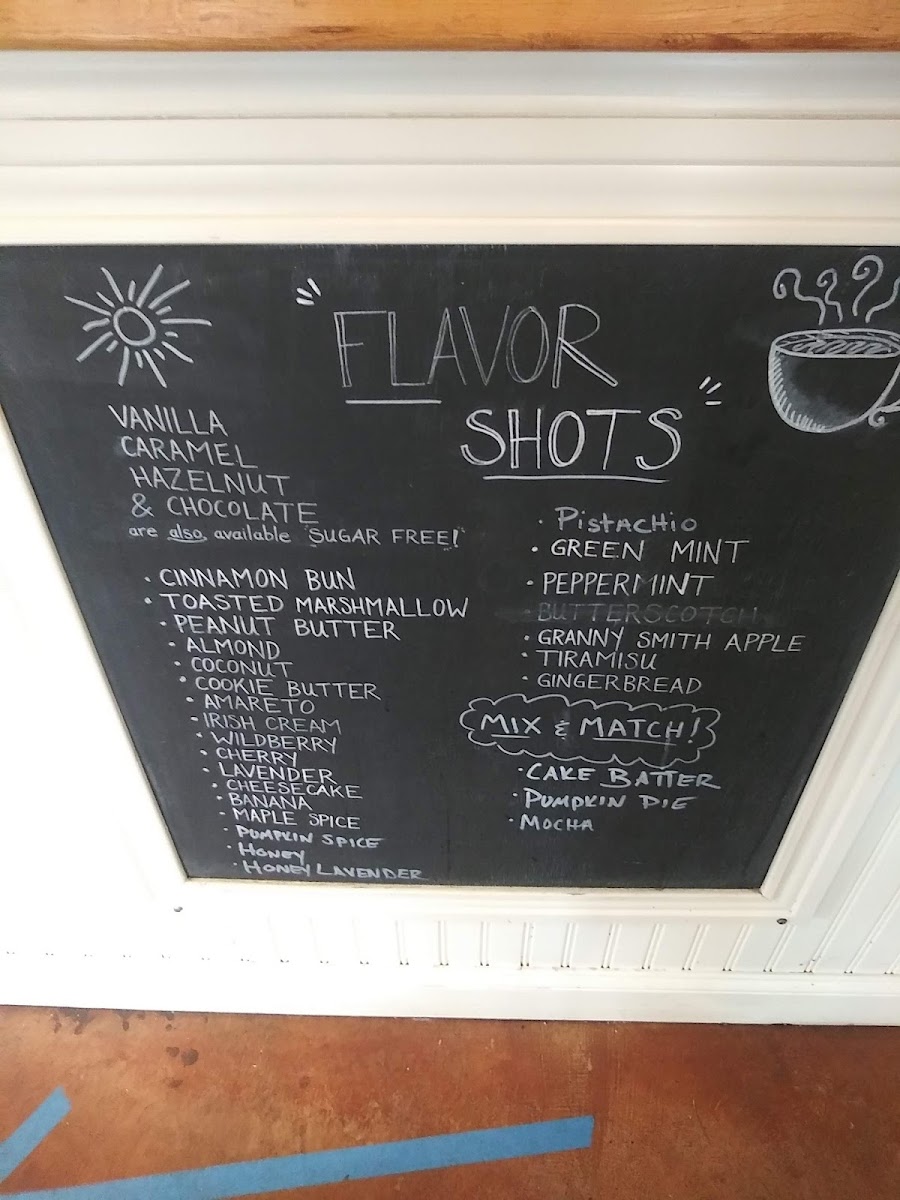 "FLAVOR
SHOTS"
VANILLA
CARAMEL
HAZELNUT
& CHOCOLATE
are also available "SUGAR FREE!"
· CINNAMON BUN
· TOASTED MARSHMALLOW
· PEANUT BUTTER
· ALMOND
· COCONUT
· COOKIE BUTTER
· AMARETO
· IRISH CREAM
· WILDBERRY
· CHERRY
· LAVENDER
· CHEESECAKE
· BANANA
· MAPLE SPICE
· PUMPKIN SPICE
· HONEY
· HONEY LAVENDER
· PistACHio
· GREEN MINT
· PEPPERMINT
· BUTTERSCOTCH
· GRANNY SMITH APPLE
· TIRAMISU
· GINGERBREAD
MIX & MATCH!
· CAKE BATTER
· PUMPKIN PIE
· MOCHA